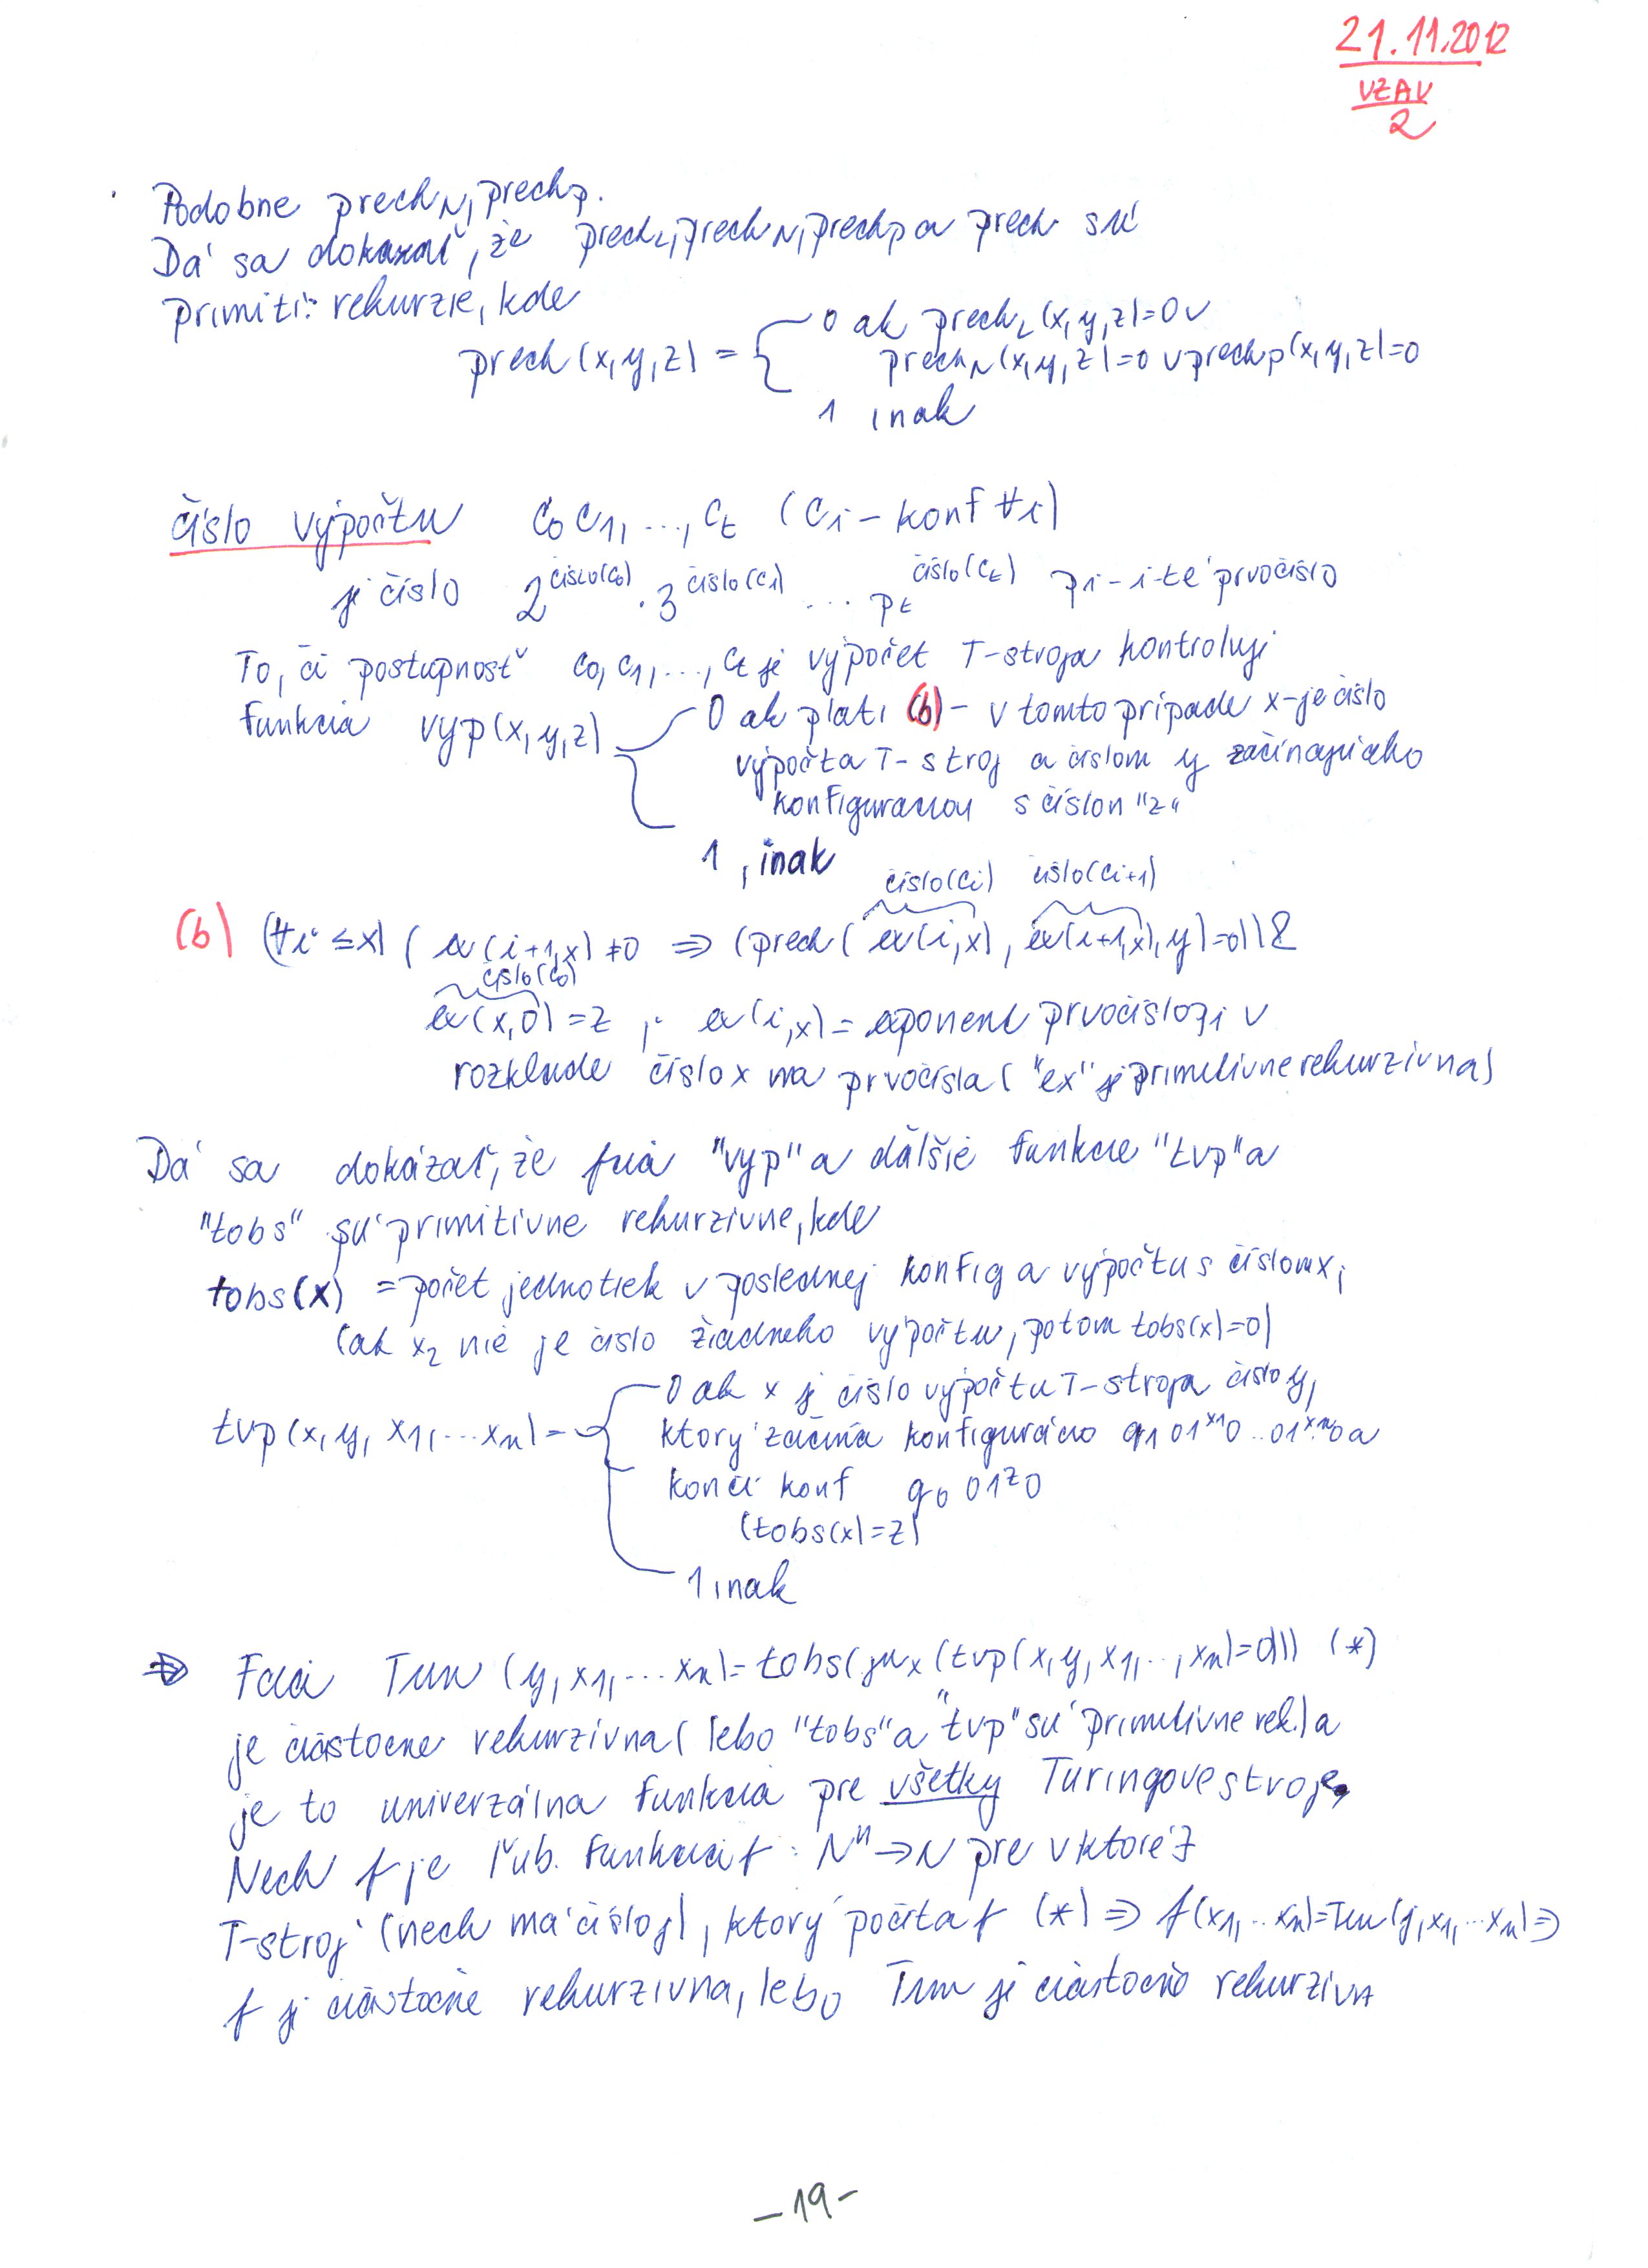 21.11.2012
VZAV
2
Podobne prech_N, prech_P.
Dá sa dokázať, že prech_L, prech_N, prech_P a prech sú
primití: rekurzie, kde
prech(x,y,z) = { 0 ak prech_L(x,y,z)=0 ∨
prech_N(x,y,z)=0 ∨ prech_P(x,y,z)=0
1 inak
číslo výpočtu C0 C1, ..., Ct (Ci - konf ∀i)
je číslo 2^číslo(C0) . 3^číslo(C1) ... pt^číslo(Ct) pi - i-te prvočíslo
To, či postupnosť C0, C1, ..., Ct je výpočet T-stroja kontroluje
funkcia vyp(x,y,z) { 0 ak platí (b) - v tomto prípade x-je číslo
výpočta T-stroj a číslom y začínajúceho
konfiguraciou s číslon "z"
1, inak
číslo(Ci) číslo(Ci+1)
(b) (∀i ≤x) ( ex(i+1,x) ≠0 ⇒ (prech( ex(i,x), ex(i+1,x),y)=0)) &
číslo(C0)
ex(x,0)=z ; ex(i,x)= exponent prvočísla pi v
rozklade číslo x na prvočísla ("ex" je primitívne rekurzívna)
Dá sa dokázať, že fcia "vyp" a dălšie funkcie "tvp" a
"tobs" sú primitívne rekurzívne, kde
tobs(x) = počet jednotiek v poslednej konfig a výpočtu s číslom x;
(ak x2 nie je číslo žiadneho výpočtu, potom tobs(x)=0)
tvp(x,y, x1, ... xn) = { 0 ak x je číslo výpočtu T-stroja číslo y,
ktorý začína konfiguráciou q1 01^x1 0 .. 01^xn 0 a
končí konf q0 01^z 0
(tobs(x)=z)
1 inak
⇒ Fcia Tun (y, x1, ... xn)= tobs(μx (tvp(x,y, x1, .., xn)=0)) (*)
je čiastočne rekurzívna (lebo "tobs" a "tvp" sú primitívne rek.) a
je to univerzálna funkcia pre všetky Turingove stroje,
Nech f je ľub. funkcia f: N^n → N pre v ktore ∃
T-stroj (nech má číslo j), ktorý počíta f (*) ⇒ f(x1, .. xn)=Tun(j,x1, ... xn) ⇒
f je čiastočne rekurzívna, lebo Tun je čiastočne rekurzívn
-19-